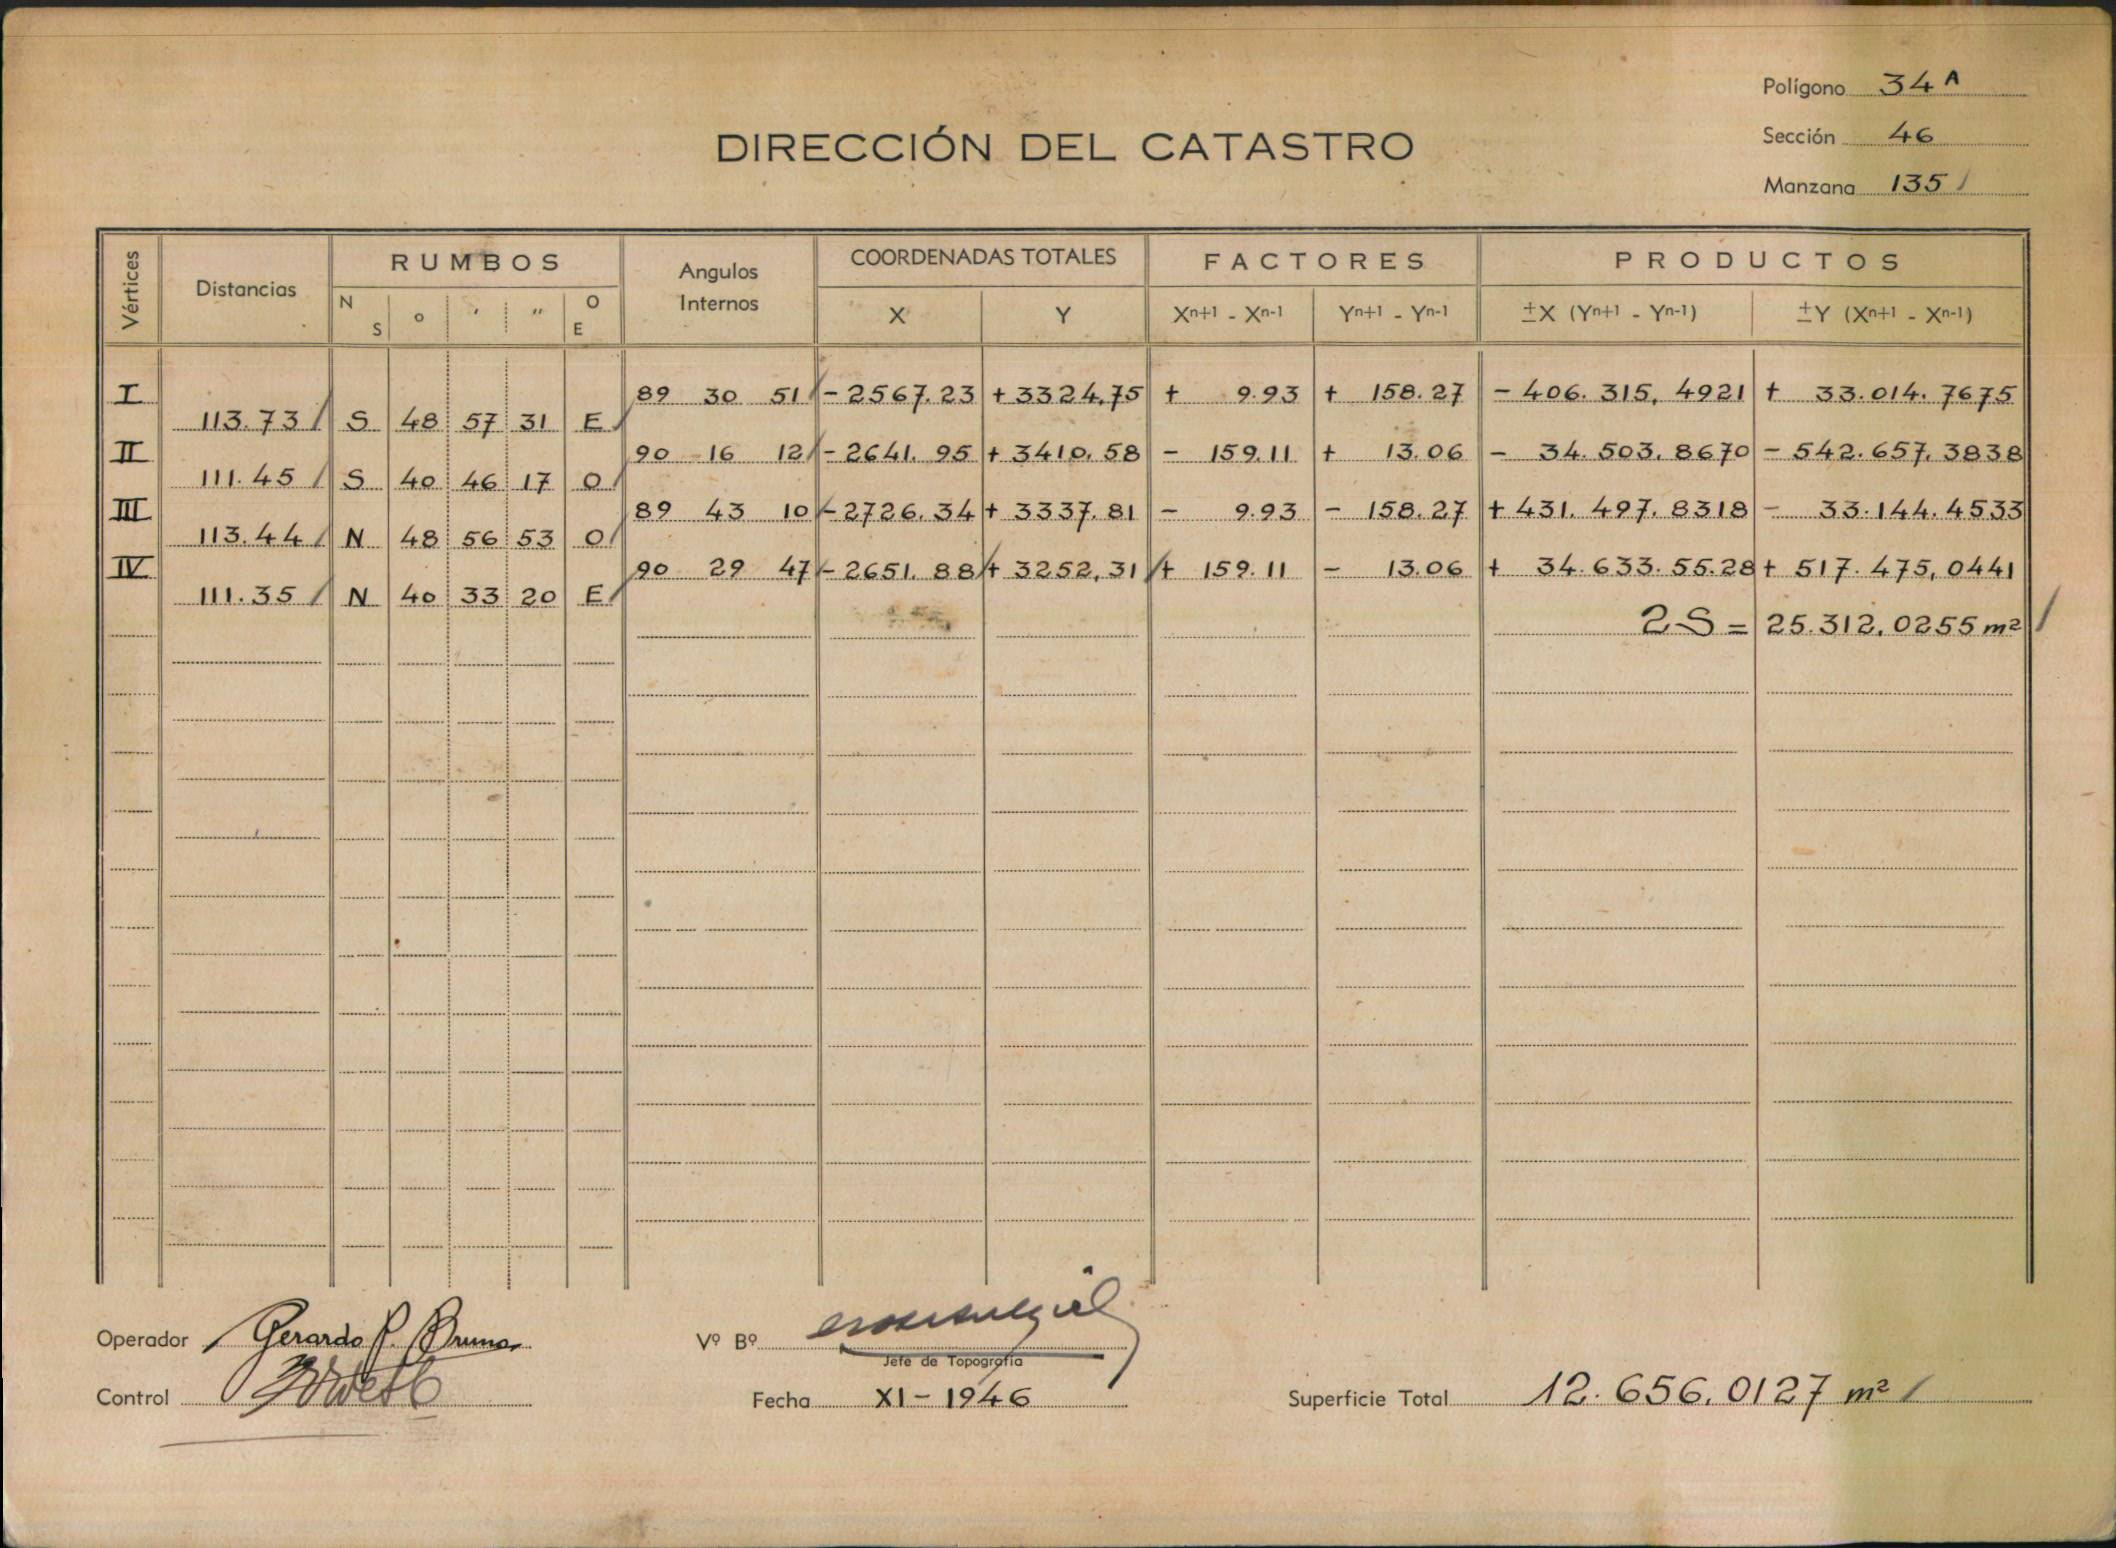 Polígono 34 A
DIRECCIÓN DEL CATASTRO
Sección 46
Manzana 135 /
Vértices Distancias RUMBOS Angulos Internos COORDENADAS TOTALES FACTORES PRODUCTOS
N S ° ' " O E X Y Xn+1 - Xn-1 Yn+1 - Yn-1 ±X (Yn+1 - Yn-1) ±Y (Xn+1 - Xn-1)
I 89 30 51 / - 2567.23 + 3324,75 + 9.93 + 158.27 - 406.315,4921 + 33.014.7675
113.73 / S 48 57 31 E /
II 90 16 12 / - 2641.95 + 3410,58 - 159.11 + 13.06 - 34.503.8670 - 542.657,3838
111.45 / S 40 46 17 O /
III 89 43 10 / - 2726.34 + 3337.81 - 9.93 - 158.27 + 431.497.8318 - 33.144.4533
113.44 / N 48 56 53 O /
IV 90 29 47 / - 2651.88 / + 3252,31 / + 159.11 - 13.06 + 34.633.55.28 + 517.475,0441
111.35 / N 40 33 20 E /
2S = 25.312,0255 m² /
Operador Gerardo P. Bruno
Vº Bº
Jefe de Topografía
Control
Fecha XI - 1946
Superficie Total 12.656,0127 m² /